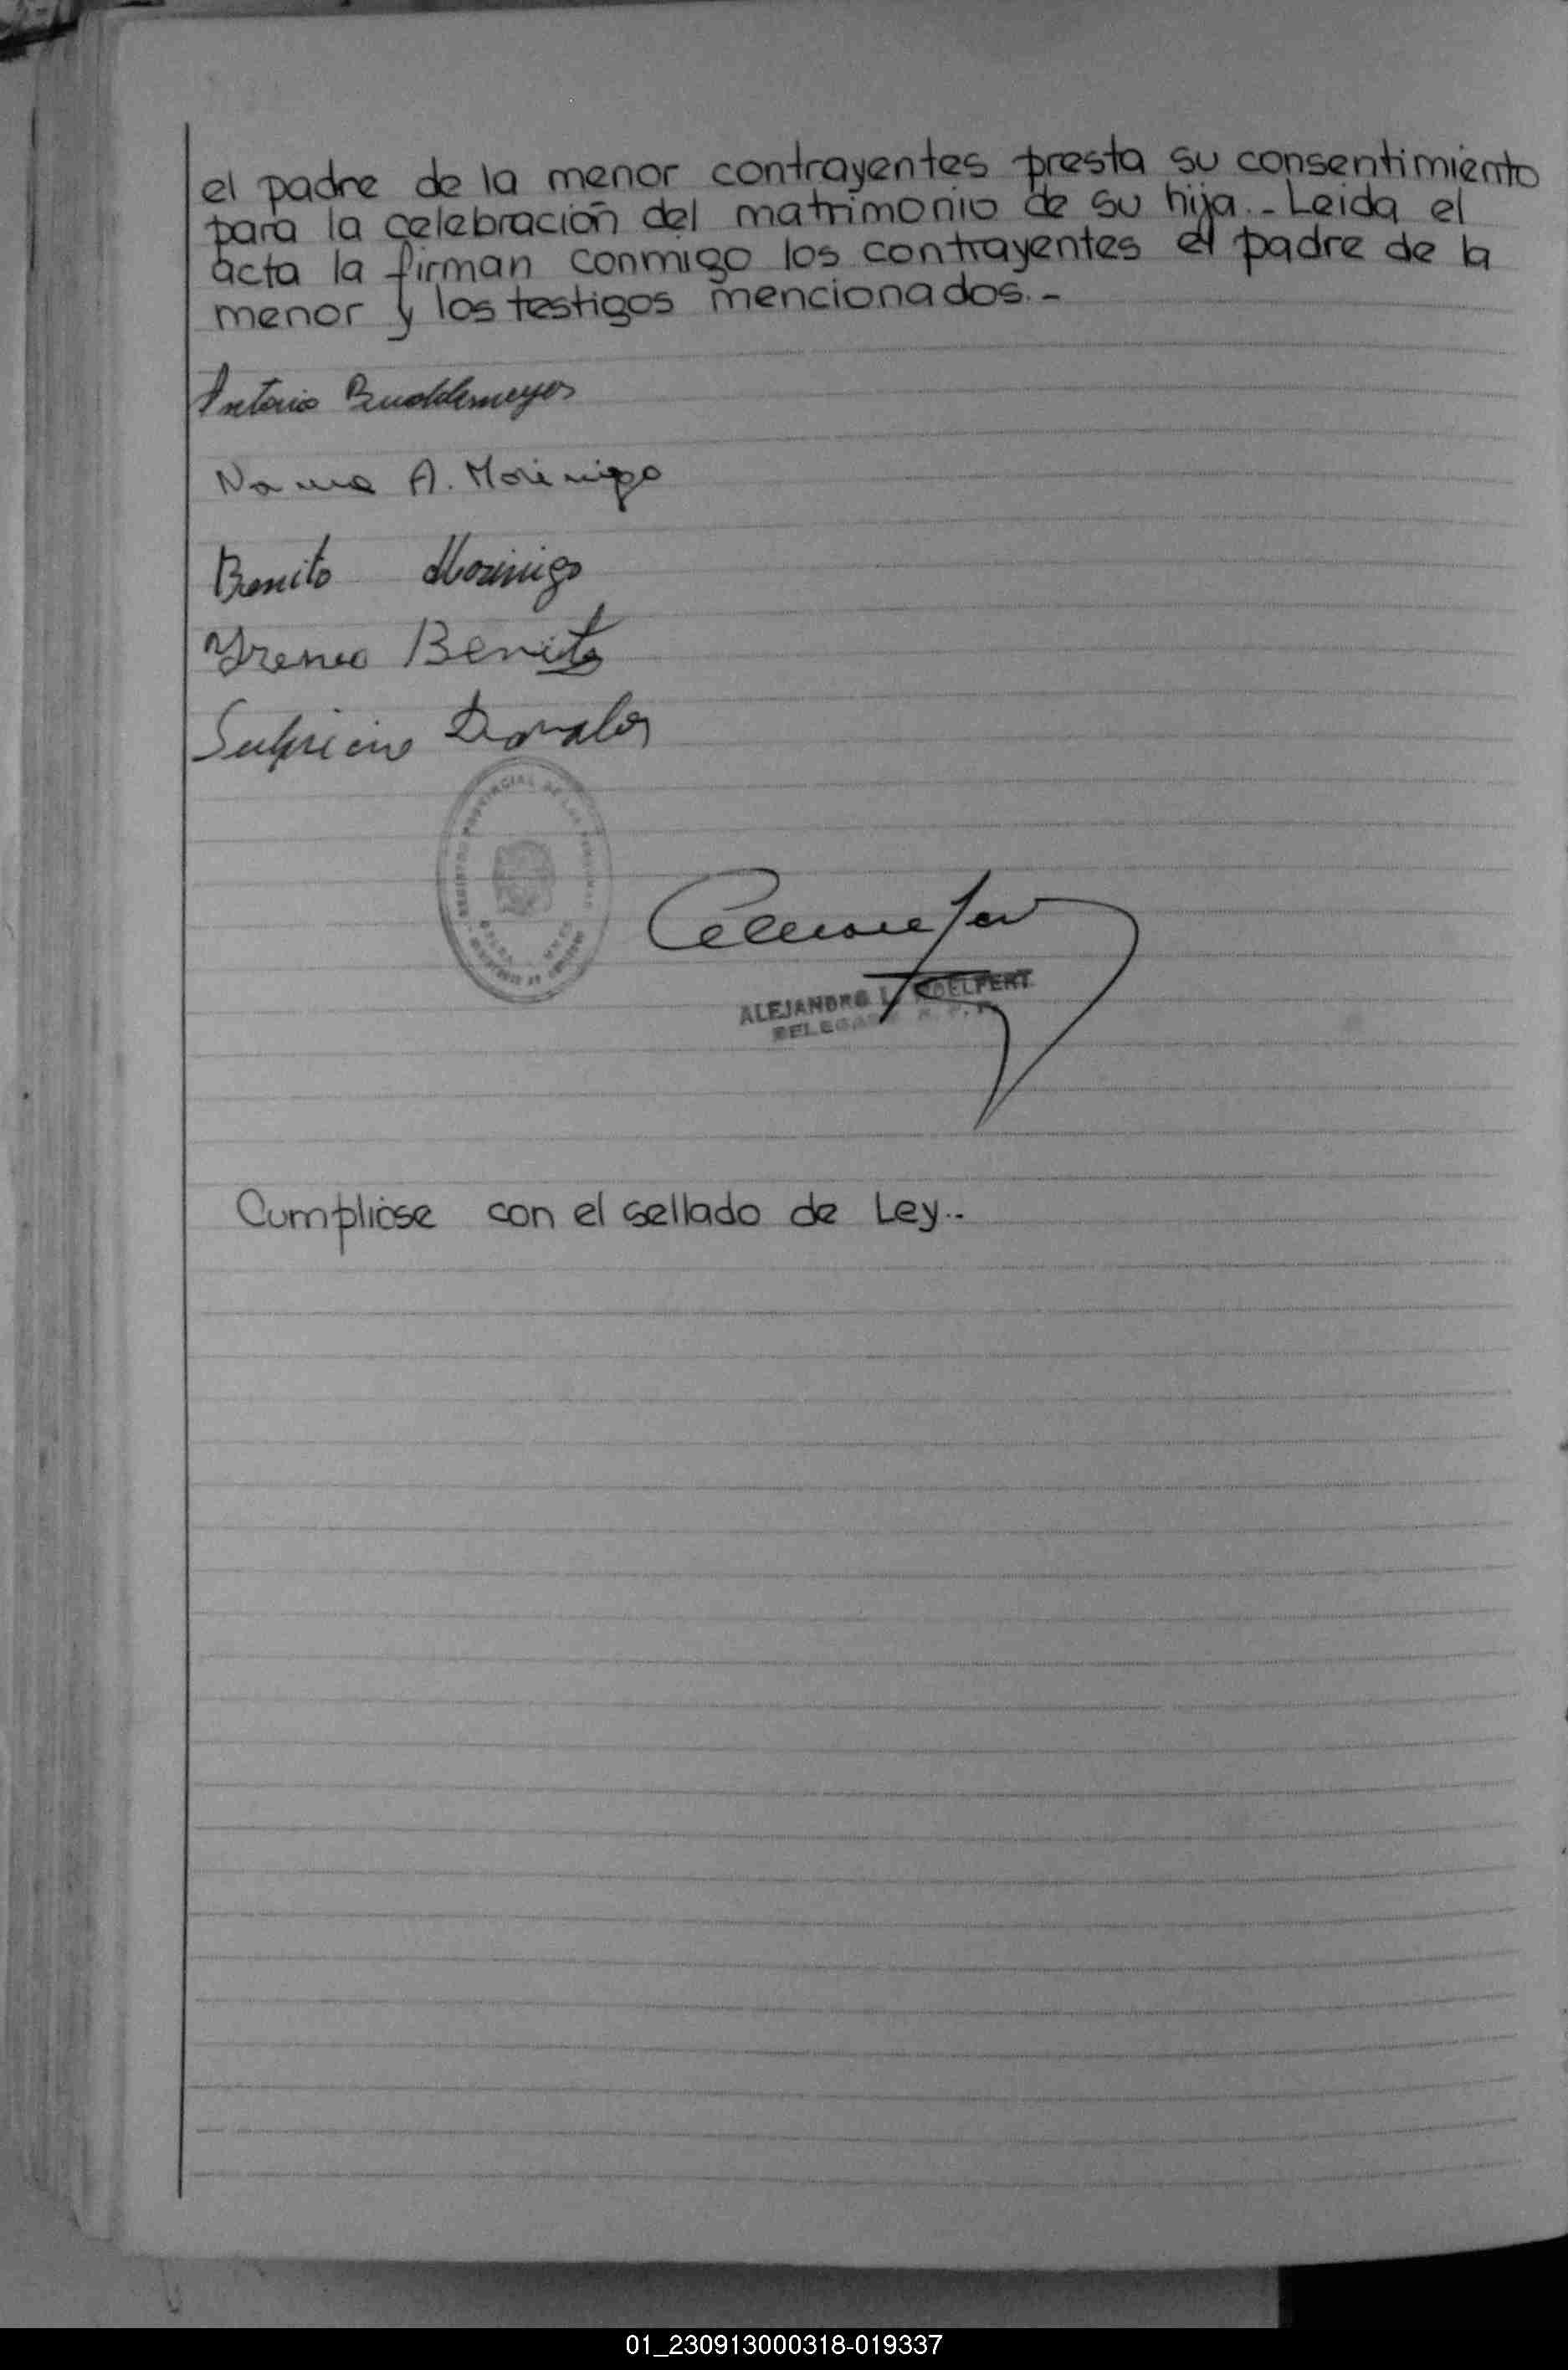 el padre de la menor contrayentes presta su consentimiento
para la celebración del matrimonio de su hija.- Leida el
acta la firman conmigo los contrayentes el padre de la
menor y los testigos mencionados.-
Antonio
Norma A. Morinigo
Benito Morinigo
Yreneo Benitez
Sulpicio Davalos
REGISTRO PROVINCIAL DE LAS PERSONAS
ALEJANDRO L.
DELEGADO R. P. P.
Cumplióse con el sellado de Ley..
01_230913000318-019337